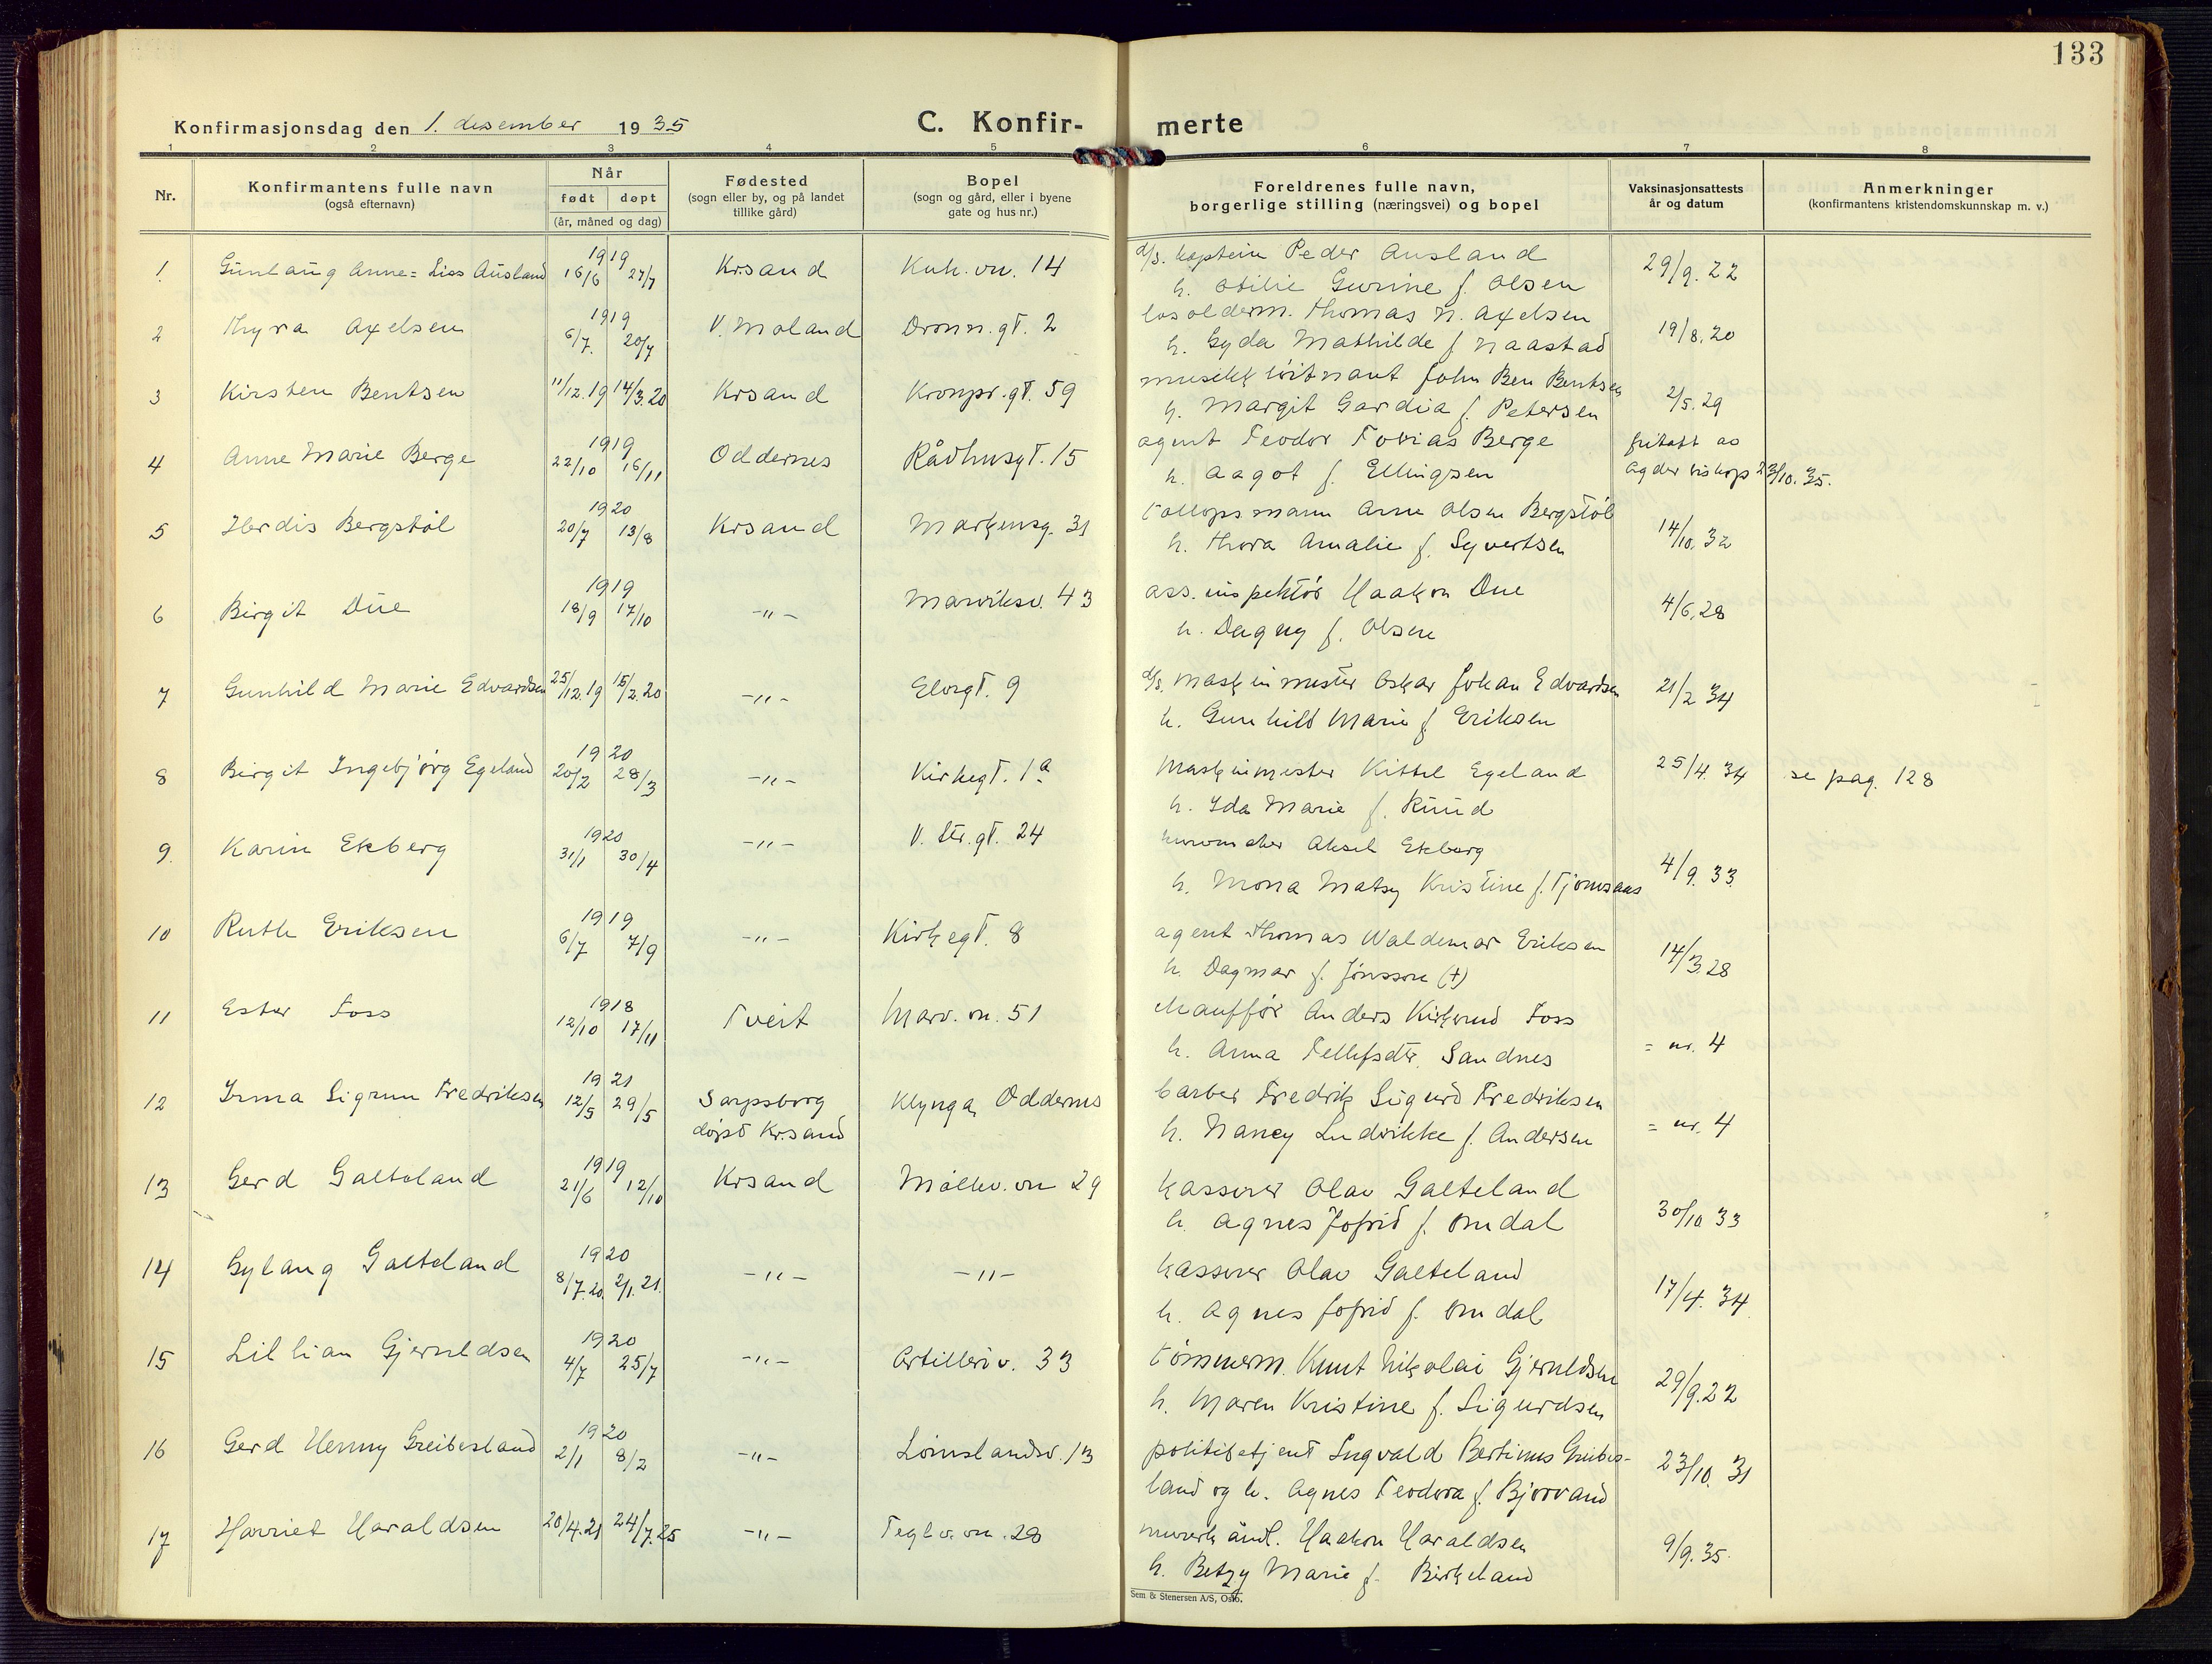 133
Konfirmasjonsdag den 1. desember 1935
C. Konfir- merte
1 2 3 4 5 6 7 8
Nr.
Konfirmantens fulle navn
(også efternavn)
Når
født døpt
(år, måned og dag)
Fødested
(sogn eller by, og på landet
tillike gård)
Bopel
(sogn og gård, eller i byene
gate og hus nr.)
Foreldrenes fulle navn,
borgerlige stilling (næringsvei) og bopel
Vaksinasjonsattests
år og datum
Anmerkninger
(konfirmantens kristendomskunnskap m. v.)
1 Gunlaug Anne=Liss Ausland 1919 16/6 27/7 Krsand Kuh. vn. 14 d/s. kaptein Peder Ausland 29/9. 22
h. Otilie Gurine f. Olsen
2 Thyra Axelsen 1919 6/7. 20/7 V. Moland Dronn. gt. 2 losolderm. Thomas N. Axelsen 19/8. 20
h. Gyda Mathilde f Naastad
3 Kirsten Bentsen 11/12. 19 14/3. 20 Krsand Kronpr. gt. 59 musikkløitnant John Ben Bentsen 2/5. 29
h. Margit Gardia f. Petersen
4 Anne Marie Berge 1919 22/10 16/11 Oddernes Rådhusgt. 15 agent Teodor Tobias Berge fritatt av
h. Aagot f. Ellingsen Agder biskop 23/10. 35.
5 Herdis Bergstøl 1920 20/7 13/8 Krsand Markensg. 31 tollopsmann Arne Olsen Bergstøl 14/10. 32
h. Thora Amalie f. Syvertsen
6 Birgit Due 1919 18/9 17/10 -"- Marviksv. 43 ass. inspektør Haakon Due 4/6. 28
h. Dagny f. Olsen
7 Gunhild Marie Edvardsen 25/12. 19 15/2. 20 -"- Elvegt. 9 d/s. maskinmester Oskar Johan Edvardsen 21/2 34
h. Gunhild Marie f Eriksen
8 Birgit Ingebjørg Egeland 1920 20/2 28/3 -"- Kirkegt. 1a Maskinmester Kittel Egeland 25/4. 34 se pag. 128
h. Ida Marie f. Ruud
9. Karin Ekberg 1920 31/1 30/4 -"- V. Str. gt. 24 Aksel Ekberg 4/9. 33.
h. Mona Matsy Kristine f. Tjomsaas
10 Ruth Eriksen 1919 6/7 7/9 -"- Kirkegt. 8 agent Thomas Waldemar Eriksen 14/3. 28
h. Dagmar f. Jönsson (†)
11 Ester Foss 1918 12/10 17/11 Tveit Marv. vn. 51 chauffør Anders Kirkerud Foss
h. Anna Tellefsdtr. Sandnes = nr. 4
12 Irma Sigrun Fredriksen 1921 12/5 29/5 Sarpsborg Klynga, Oddernes barber Fredrik Sigurd Fredriksen
døpt Kr.sand h. Nancy Ludvikke f. Andersen = nr. 4
13 Gerd Galteland 1919 21/6 12/10 Krsand Møllev. vn 29 kasserer Olav Galteland
h. Agnes Jofrid f. Omdal 30/10 33
14 Gylaug Galteland 1920 8/7. 20. 2/1. 21. -"- -"- kasserer Olav Galteland
h. Agnes Jofrid f. Omdal 17/4. 34
15 Lillian Gjeruldsen 1920 4/7 25/7 -"- Artilleriv. 33 tømmerm. Knut Nikolai Gjeruldsen
h. Maren Kristine f. Sigurdsen 29/9. 22
16 Gerd Henny Greibesland 1920 2/1 8/2 -"- Lømslandsv. 13 politibetjent Ingvald Bertinus Greibes-
land og h. Agnes Teodora f. Bjorvand 23/10. 31
17 Harriet Haraldsen 20/4. 21 24/7. 25 -"- Teglv. vn. 28 Haakon Haraldsen
h. Betzy Marie f. Birkeland 9/9. 35.
Sem & Stenersen A/S, Oslo.